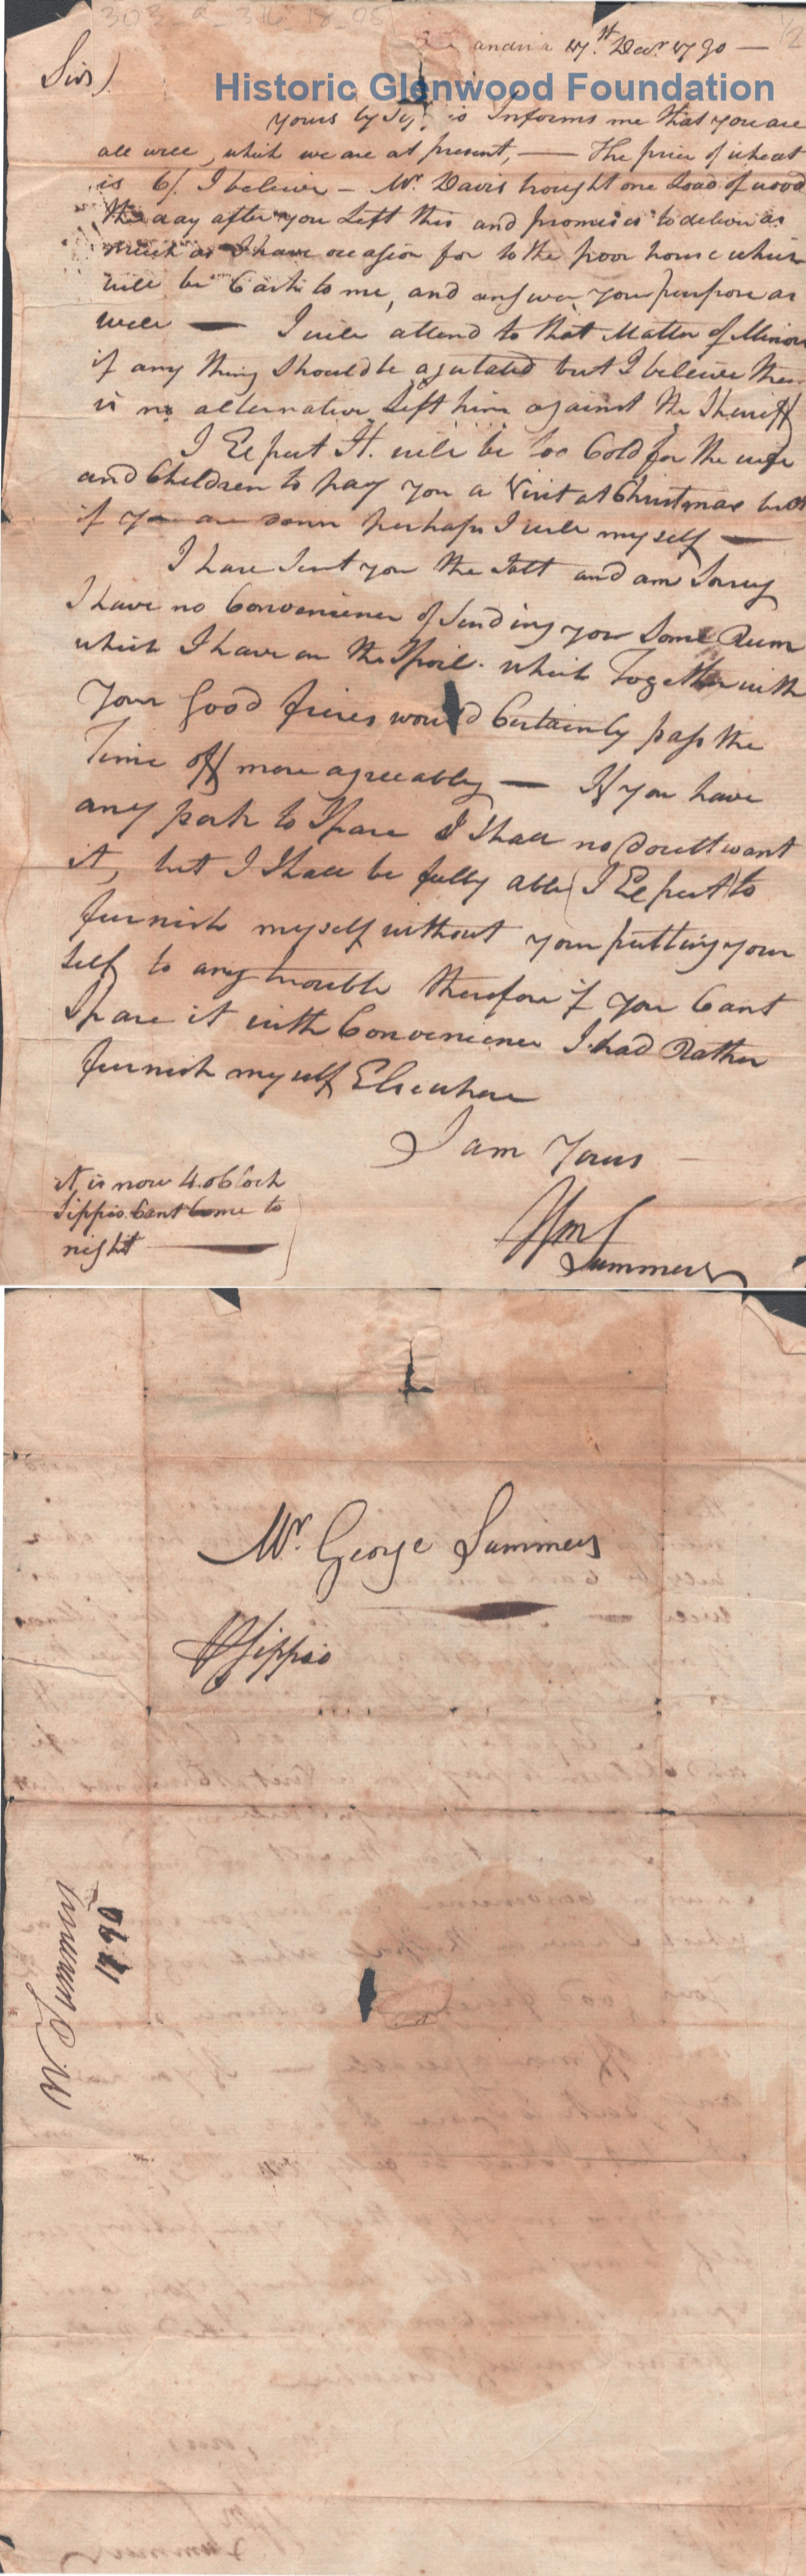 303_a_316_18_05
1/2
andria 17.st Decr. 1790 —
Historic Glenwood Foundation
Sir)
yours by is Informs me that you are
all well, which we are at present, — The price of wheat
is 6/. I beleive — Mr. Davis bought one Load of wood
the day after you Left this and promises to deliver as
much as I have occasion for to the poor house which
will be Cash to me, and answer your purpose as
well — I will attend to that Matter of Minor
if any thing Should be agutated but I beleive there
is no alternative Left him against the Sheriff
I Expect It. will be too Cold for the wife
and Children to pay you a Visit at Christmas but
if you are down perhaps I will my self —
I have Sent you the Salt and am Sorry
I have no Convenience of Sending you Some Rum
which I have on the Spoil. which Together with
Your Good fires would Certainly pass the
Time off more agreeably — If you have
any pork to Spare I Shall no doubt want
it, but I Shall be fully able (I Expect) to
furnish myself without your putting your
self to any trouble therefore if you Cant
Spare it with Convenience I had Rather
furnish myself Elsewhere
I am Yours
Wm Summers
it is now 4. oClock
Sippio Cant Come to
night —
Mr. George Summers
Sippio
W. Summers
1790